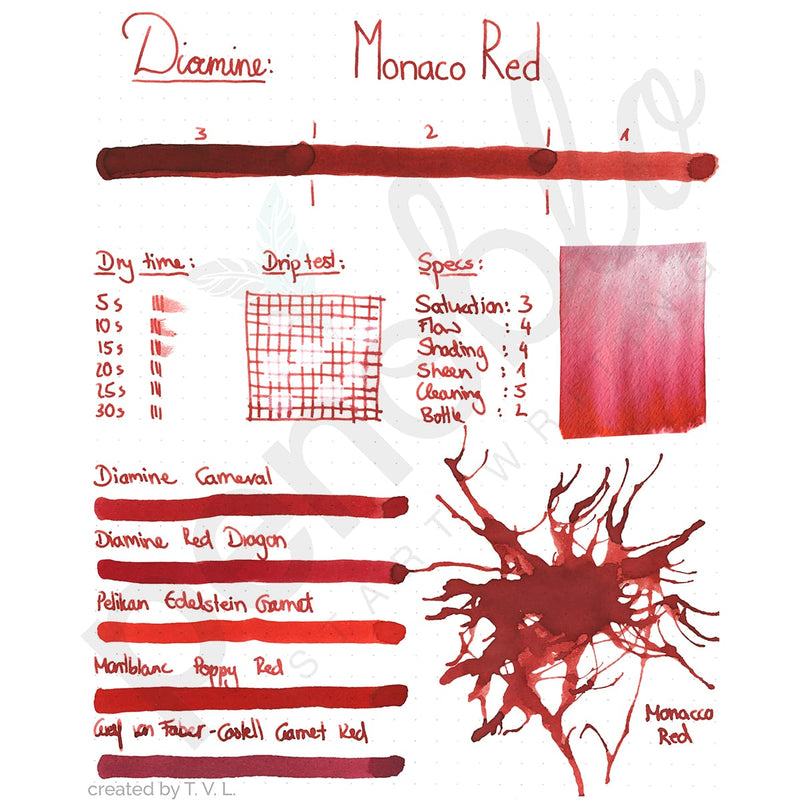 Diamine: Monaco Red
3 | 2 | 1
Dry time:
5s
10s
15s
20s
25s
30s
Drip test:
Specs:
Saturation: 3
Flow : 4
Shading : 4
Sheen : 1
Cleaning : 5
Bottle : 2
Diamine Carneval
Diamine Red Dragon
Pelikan Edelstein Garnet
Montblanc Poppy Red
Graf von Faber-Castell Garnet Red
Monacco
Red
penoblo
START WRITING
created by T. V. L.